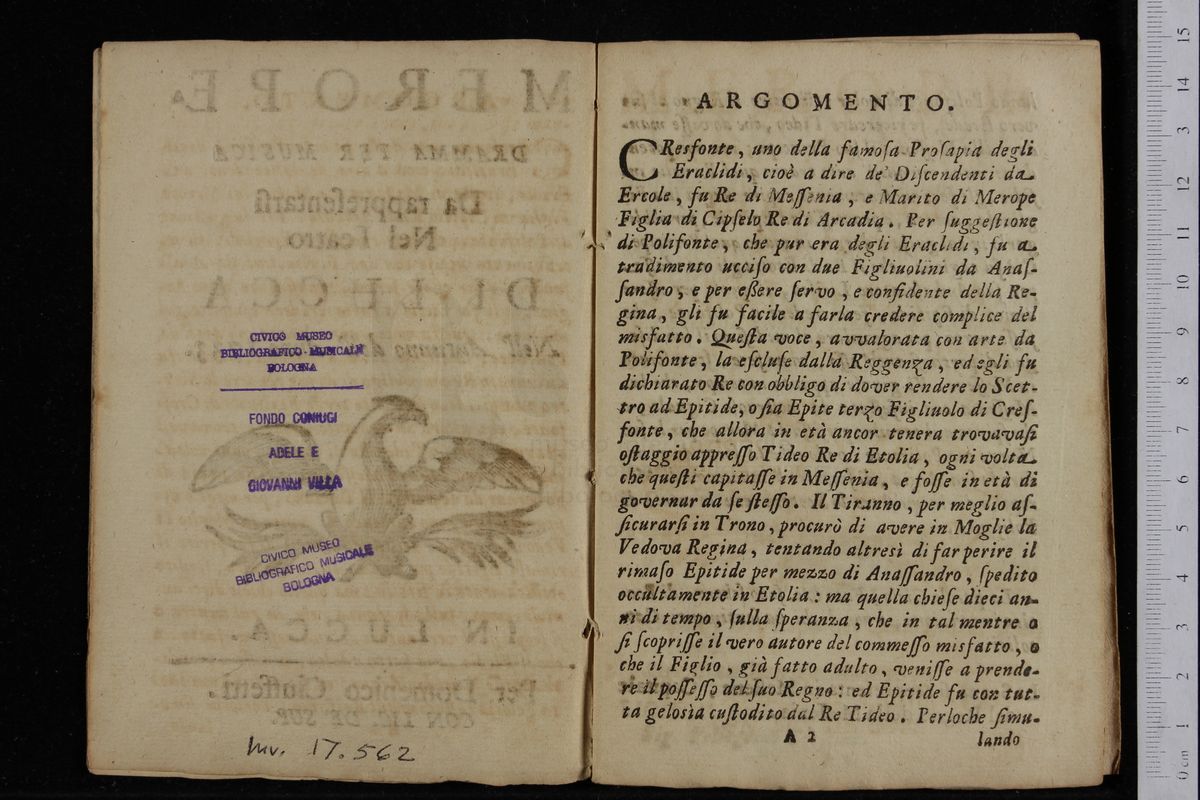 CIVICO MUSEO
BIBLIOGRAFICO MUSICALE
BOLOGNA
FONDO CONIUGI
ADELE E
GIOVANNI VILLA
CIVICO MUSEO
BIBLIOGRAFICO MUSICALE
BOLOGNA
Inv. 17.562
ARGOMENTO.
CResfonte, uno della famoſa Proſapia degli
Eraclidi, cioè a dire de' Diſcendenti da
Ercole, fu Re di Meſſenia, e Marito di Merope
Figlia di Cipſelo Re di Arcadia. Per ſuggeſtione
di Polifonte, che pur era degli Eraclidi, fu a
tradimento ucciſo con due Figliuolini da Anaſ-
ſandro, e per eßere ſervo, e confidente della Re-
gina, gli fu facile a farla credere complice del
misfatto. Queſta voce, avvalorata con arte da
Polifonte, la eſcluſe dalla Reggenza, ed egli fu
dichiarato Re con obbligo di dover rendere lo Scet-
tro ad Epitide, o ſia Epite terzo Figliuolo di Creſ-
fonte, che allora in età ancor tenera trovavaſi
oſtaggio appreſſo Tideo Re di Etolia, ogni volta
che queſti capitaſſe in Meſſenia, e foſſe in età di
governar da ſe ſteſſo. Il Tiranno, per meglio aſ-
ſicurarſi in Trono, procurò di avere in Moglie la
Vedova Regina, tentando altresì di far perire il
rimaſo Epitide per mezzo di Anaſſandro, ſpedito
occultamente in Etolia: ma quella chieſe dieci an-
ni di tempo, ſulla ſperanza, che in tal mentre o
ſi ſcopriſſe il vero autore del commeſſo misfatto, o
che il Figlio, già fatto adulto, veniſſe a prende-
re il poſſeſſo del ſuo Regno: ed Epitide fu con tut-
ta gelosìa cuſtodito dal Re Tideo. Perloche ſimu-
A 2 lando
0 cm 1 2 3 4 5 6 7 8 9 10 11 12 13 14 15